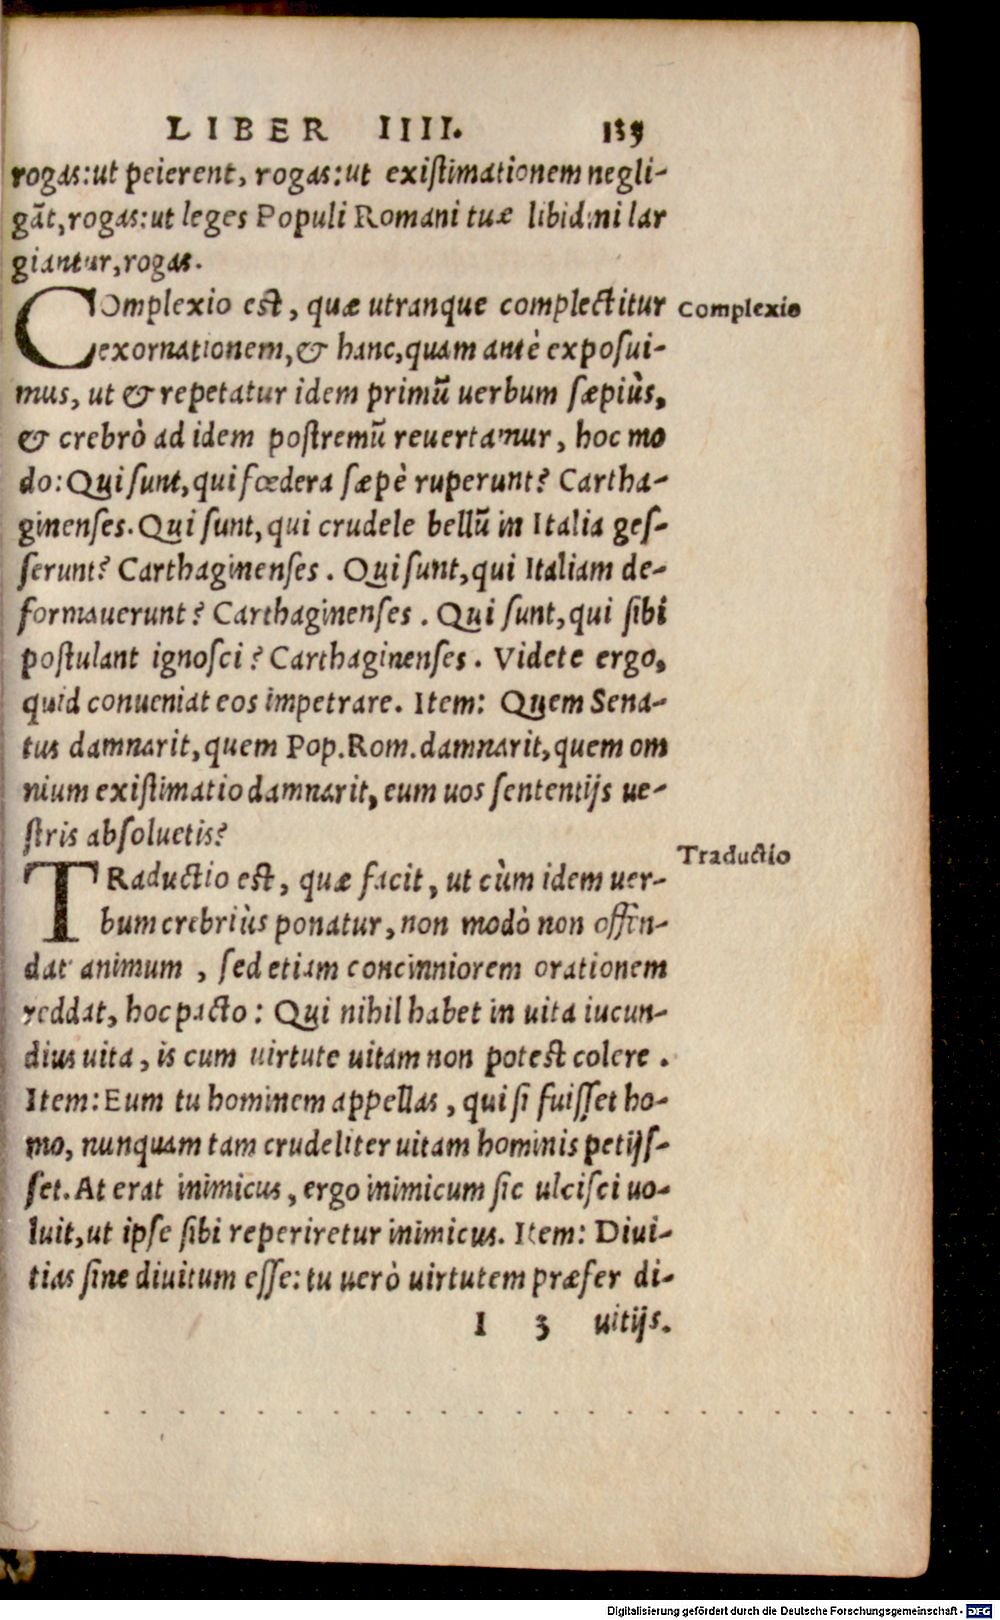 LIBER IIII. 135
rogas:ut peierent, rogas:ut existimationem negli-
gāt,rogas:ut leges Populi Romani tuæ libidini lar
giantur,rogas.
COmplexio est, quæ utranque complectitur
Complexio
exornationem,& hanc,quam antè exposui-
mus, ut & repetatur idem primū uerbum sæpiùs,
& crebrò ad idem postremū reuertamur, hoc mo
do:Qui sunt,qui fœdera sæpè ruperunt? Cartha-
ginenses.Qui sunt,qui crudele bellū in Italia ges-
serunt? Carthaginenses. Qui sunt,qui Italiam de-
formauerunt? Carthaginenses. Qui sunt,qui sibi
postulant ignosci? Carthaginenses. Videte ergo,
quid conueniat eos impetrare. Item: Quem Sena-
tus damnarit,quem Pop.Rom.damnarit,quem om
nium existimatio damnarit, eum uos sententijs ue-
stris absoluetis?
Traductio
TRaductio est, quæ facit, ut cùm idem uer-
bum crebriùs ponatur, non modò non offen-
dat animum , sed etiam concinniorem orationem
reddat, hoc pacto: Qui nihil habet in uita iucun-
dius uita, is cum uirtute uitam non potest colere.
Item:Eum tu hominem appellas, qui si fuisset ho-
mo, nunquam tam crudeliter uitam hominis petijs-
set.At erat inimicus, ergo inimicum sic ulcisci uo-
luit,ut ipse sibi reperiretur inimicus. Item: Diui-
tias sine diuitum esse: tu uerò uirtutem præfer di-
I 3 uitijs.
Digitalisierung gefördert durch die Deutsche Forschungsgemeinschaft - DFG